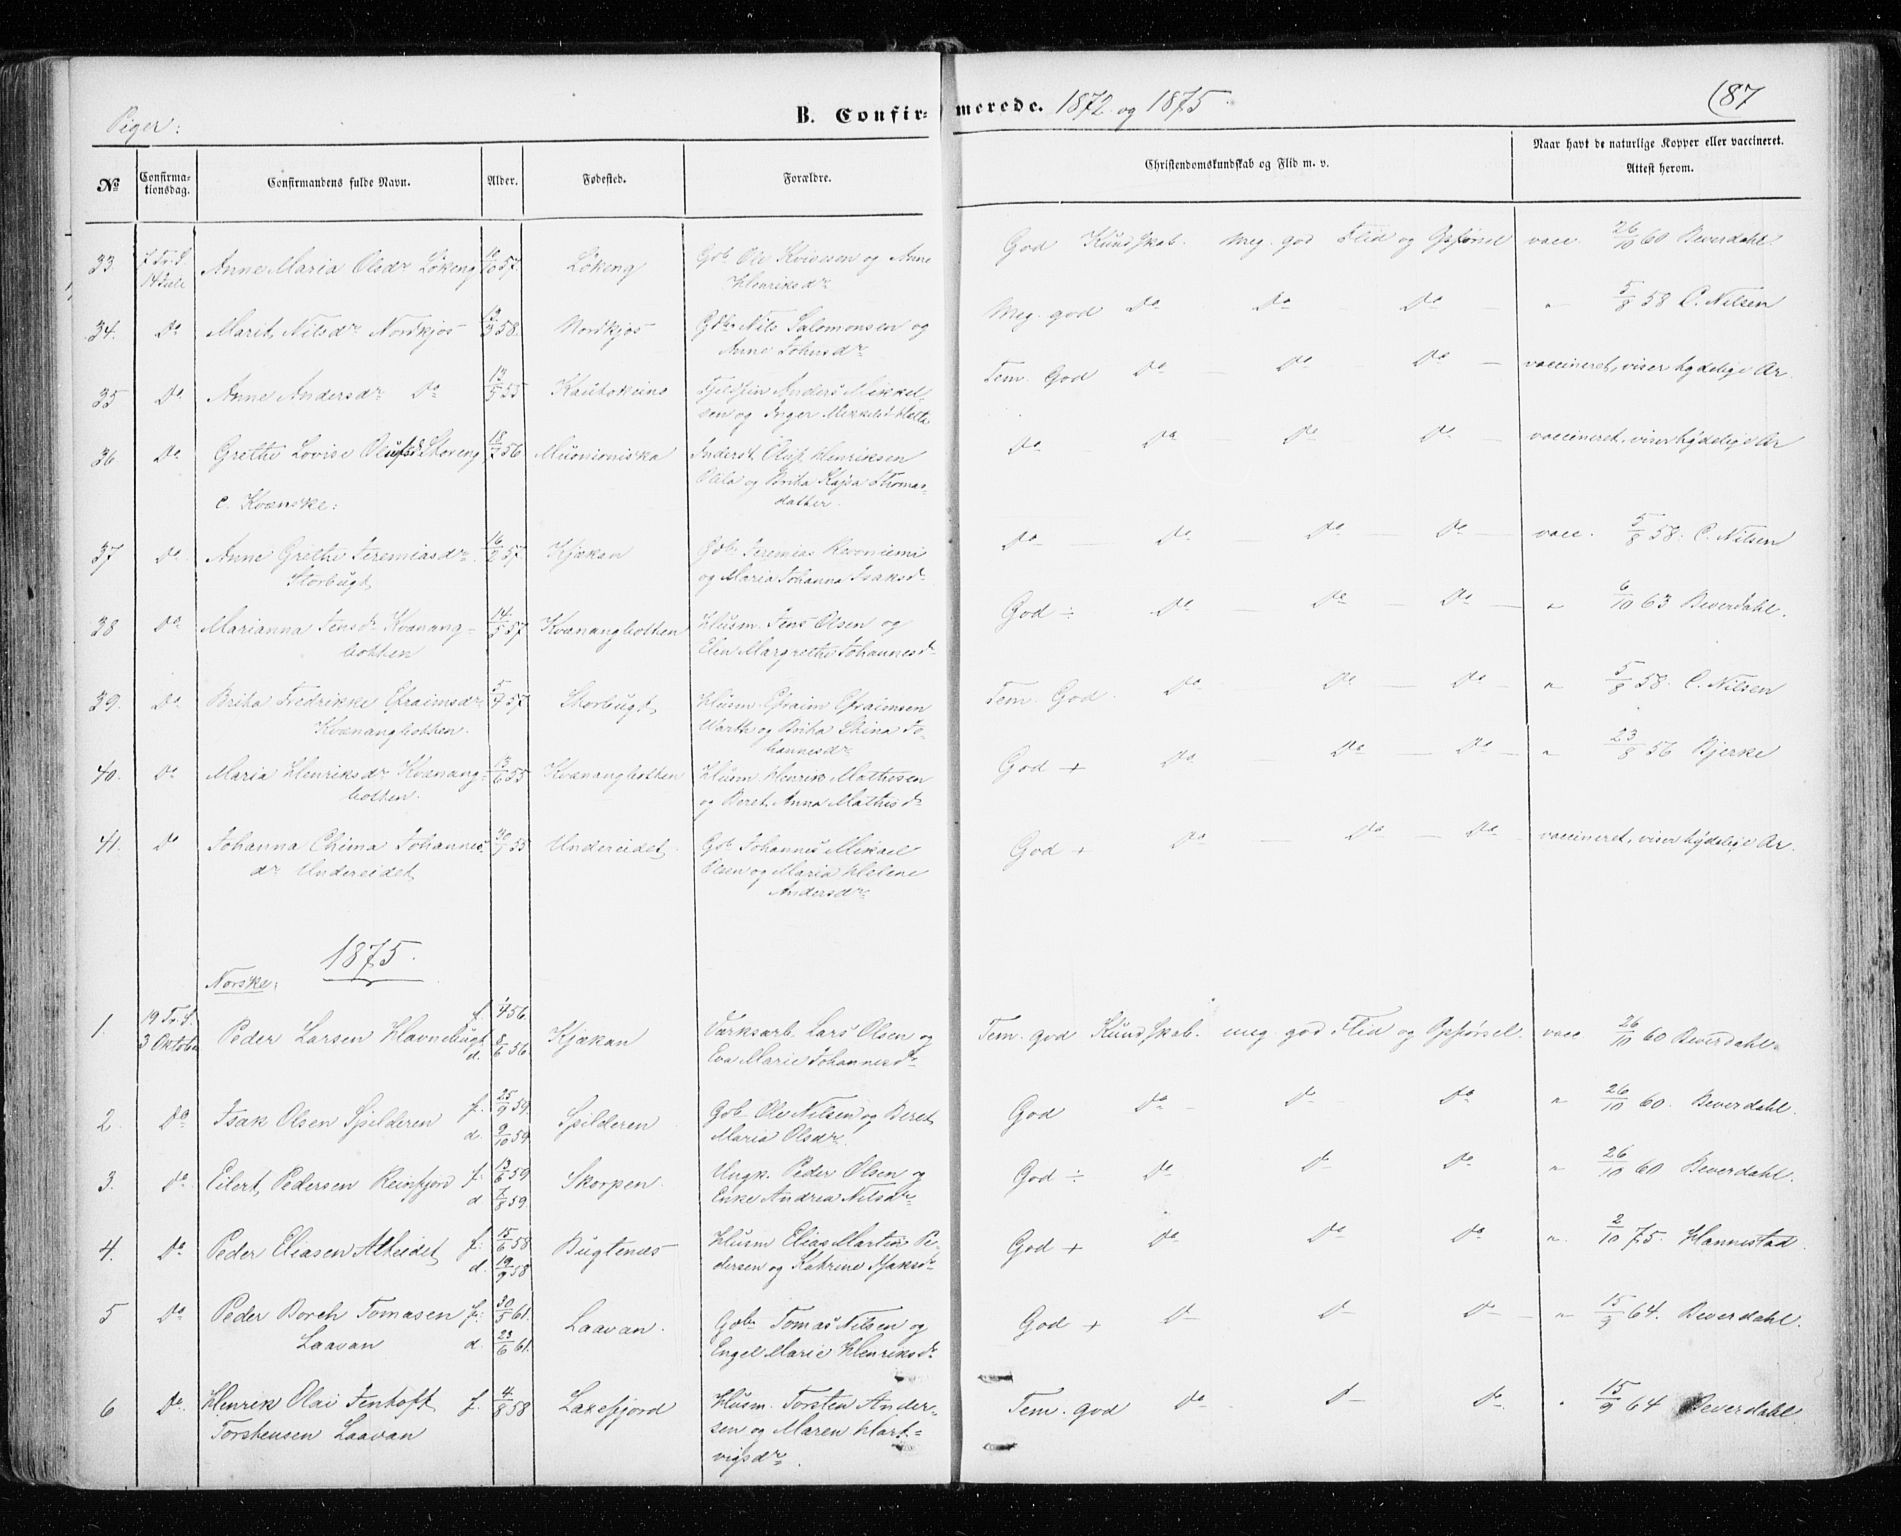 Piger:
B. Confirmerede. 1872 og 1875.
187
No
Confirmationsdag.
Confirmandens fulde Navn.
Alder.
Fødested.
Forældre.
Christendomskundskab og Flid m. v.
Naar havt de naturlige Kopper eller vaccineret.
Attest herom.
33. Anne Maria Olsdr Løkeng 57. Løkeng Gbr Ole og Anne God Kundskab. Meg. god Flid og Opførsel vacc. 26/10 60 Beverdahl.
14 Juli Henriksdr
34. Do Marit Nilsdr Nordkjos 58. Nordkjos Gbr Nils Salomonsen og Meg. god Do Do Do " 5/8 58 C. Nilsen
Anne Johnsdr
35 Do Anne Andersdr Do 13/5 55 Kautokeino Fjeldfin Anders Mikkel- Tem. God Do Do Do vaccineret, viser tydelige Ar.
sen og Inger Mikkelsd
36 Do Grethe Lovise Olufsd Storeng 18/7 56 Muonioniska Inderst Oluf Henriksen Do Do Do Do vaccineret, viser tydelige Ar
og Brita Kajsa Thomas-
datter.
c. Kvænske:
37 Do Anne Grethe Jeremiasdr 16/2 57. Kjækan Gbr Jeremias og Do Do Do Do vacc. 5/8 58. C. Nilsen
Storbugt og Maria Johanna Isaksdr
38 Do Marianna Jensdr Kvænang- 14/5 57 Kvænangbotten Husm. Jens Olsen og God ÷ Do Do Do " 6/10 63 Beverdahl.
botten Elen Margrethe Johannesdr
39. Do Brita Fredrikke Efraimsdr 5/9 57 Storbugt Husm. Efraim Efraimsen Tem. God. Do Do Do " 5/8 58. C. Nilsen
Kvænangbotten. og Brita Stina Jo-
hannesdr
40. Do Maria Henriksdr Kvænang- 13/6 55 Kvænangbotten Husm. Henrik Mathisen God + Do Do Do " 23/8 56 Bjerke
botten. og Beret Anna Mathisdr
41. Do Johanna Johannes- 55 Undereidet. Gbr Johannes Mikael God + Do Do Do vaccineret, viser tydelige Ar.
dr Undereidet Olsen og Maria Helene
Andersdr
1875.
Norske:
1. 19 Tr. S. Peder Larsen Havnebugt f. 56 Kjækan Værksarb. Lars Olsen og Tem. god Kundskab. meg. god Flid og Opførsel. vacc 26/10 60 Beverdahl.
3 Oktober d. 8/6 56. Eva Marie Johannesdr
2. Do Isak Olsen Spilderen f. 25/9 59. Spilderen Gbr Ole Nilsen og Beret God Do Do Do " 26/10 60. Beverdahl.
d. 9/10 59 Maria Olsdr.
3. Do Eilert Pedersen Reinfjord f. 13/6 59 Skorpen. Ungk. Peder Olsen og God ÷ Do Do Do " 26/10 60 Beverdahl.
d 7/8 59 Enke Andrea Nilsdr
4. Do Peder Eliasen Alteidet f. 15/6 58 Bugtenæs Husm Elias Martin Pe- God + Do Do Do " 2/10 75. Hannestad.
d. 19/9 58 dersen og Katrine Isaksdr
5 Do Peder Borch Tomasen f. 30/5 61. Laavan. Gbr Tomas Nilsen og God + Do Do Do " 15/9 64. Beverdahl.
Laavan d. 23/6 61. Engel Marie Henriksdr
6 Do. Henrik Olai Jentoft f. 4/8 58 Laxefjord Husm. Torsten Ander- Tem. god Do Do Do. " 15/9 64 Beverdahl.
Torstensen Laavan sen og Maren Hart-
vigsdr.